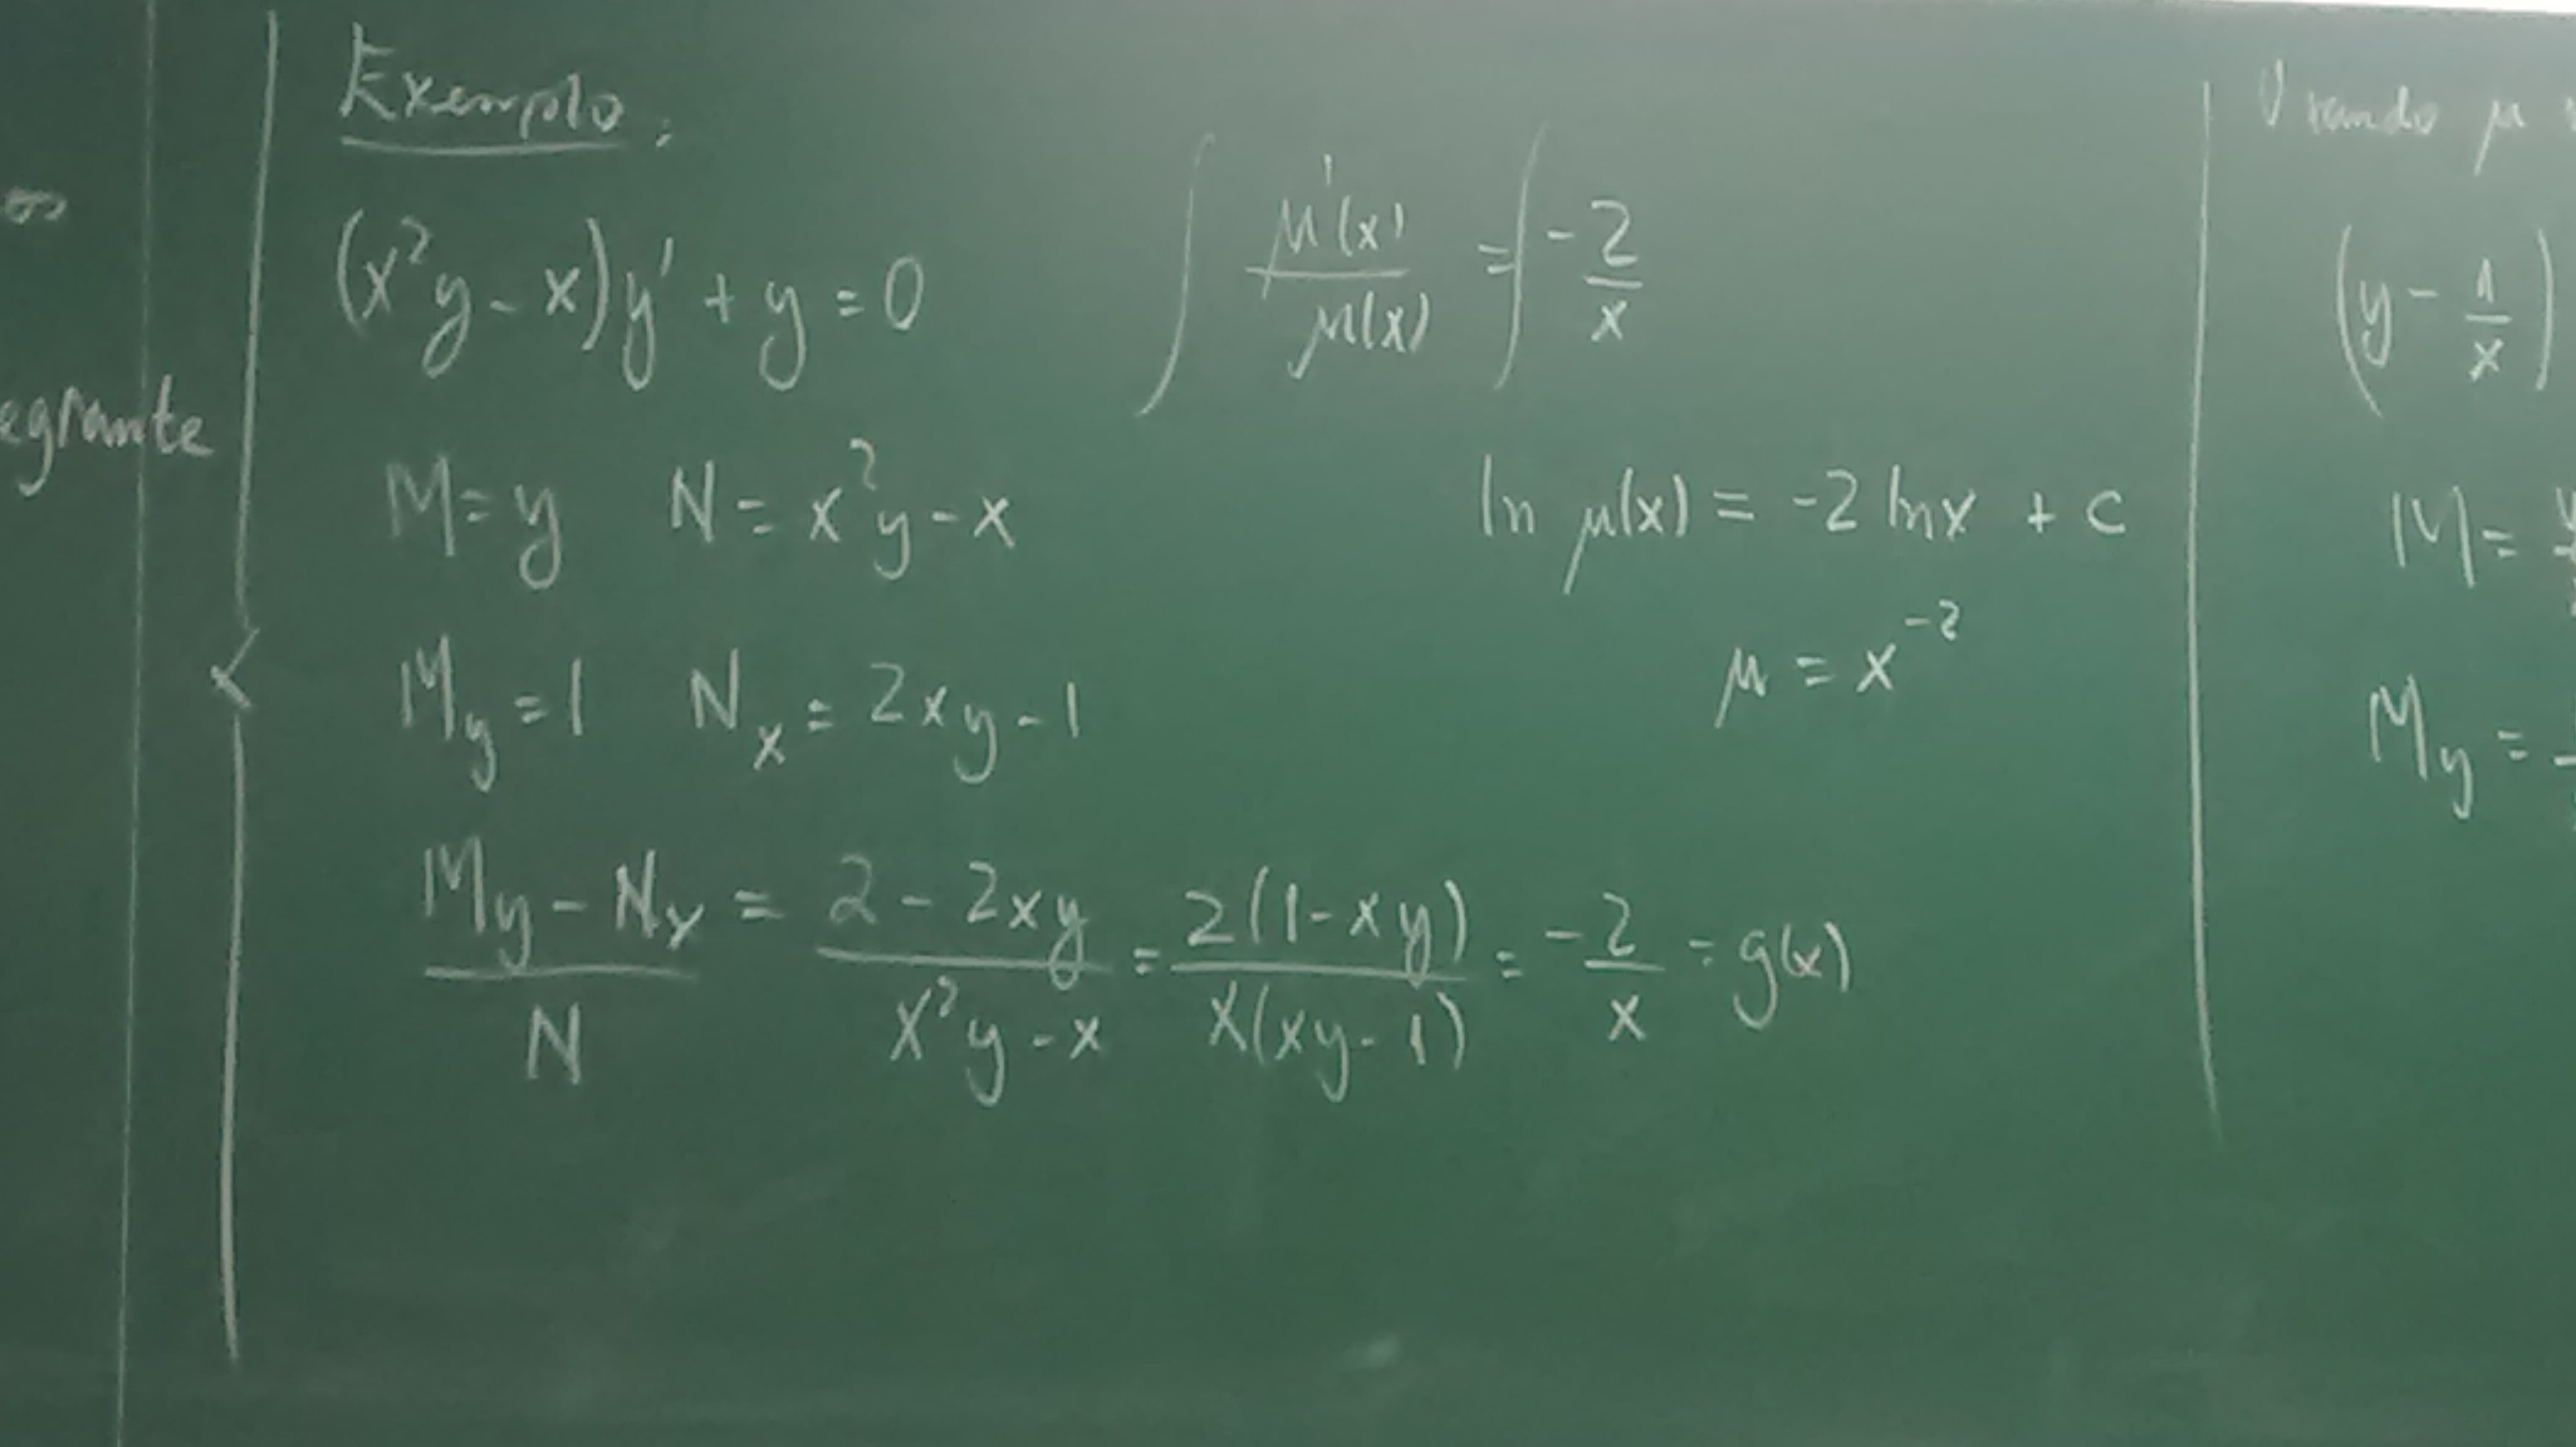 egrante
Exemplo:
(x²y - x)y' + y = 0
M = y   N = x²y - x
M_y = 1   N_x = 2xy - 1
(M_y - N_x)/N = (2 - 2xy)/(x²y - x) = 2(1 - xy)/(x(xy - 1)) = -2/x = g(x)
∫ μ'(x)/μ(x) = ∫ -2/x
ln μ(x) = -2 ln x + c
μ = x⁻²
Usando μ
(y - 1/x)
M =
M_y =